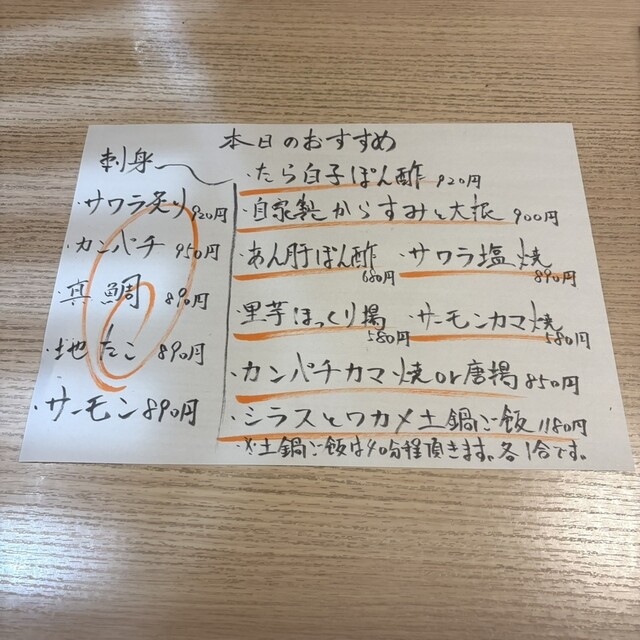 本日のおすすめ
刺身
・サワラ炙り920円
・カンパチ 950円
・真鯛 890円
・地たこ 890円
・サーモン890円
・たら白子ぽん酢920円
・自家製からすみと大根 900円
・あん肝ぽん酢 680円 ・サワラ塩焼 890円
・里芋ほっくり揚 580円 ・サーモンカマ焼 580円
・カンパチカマ焼or唐揚850円
・シラスとワカメ土鍋ご飯1180円
・※土鍋ご飯は40分程頂きます。各1合です。